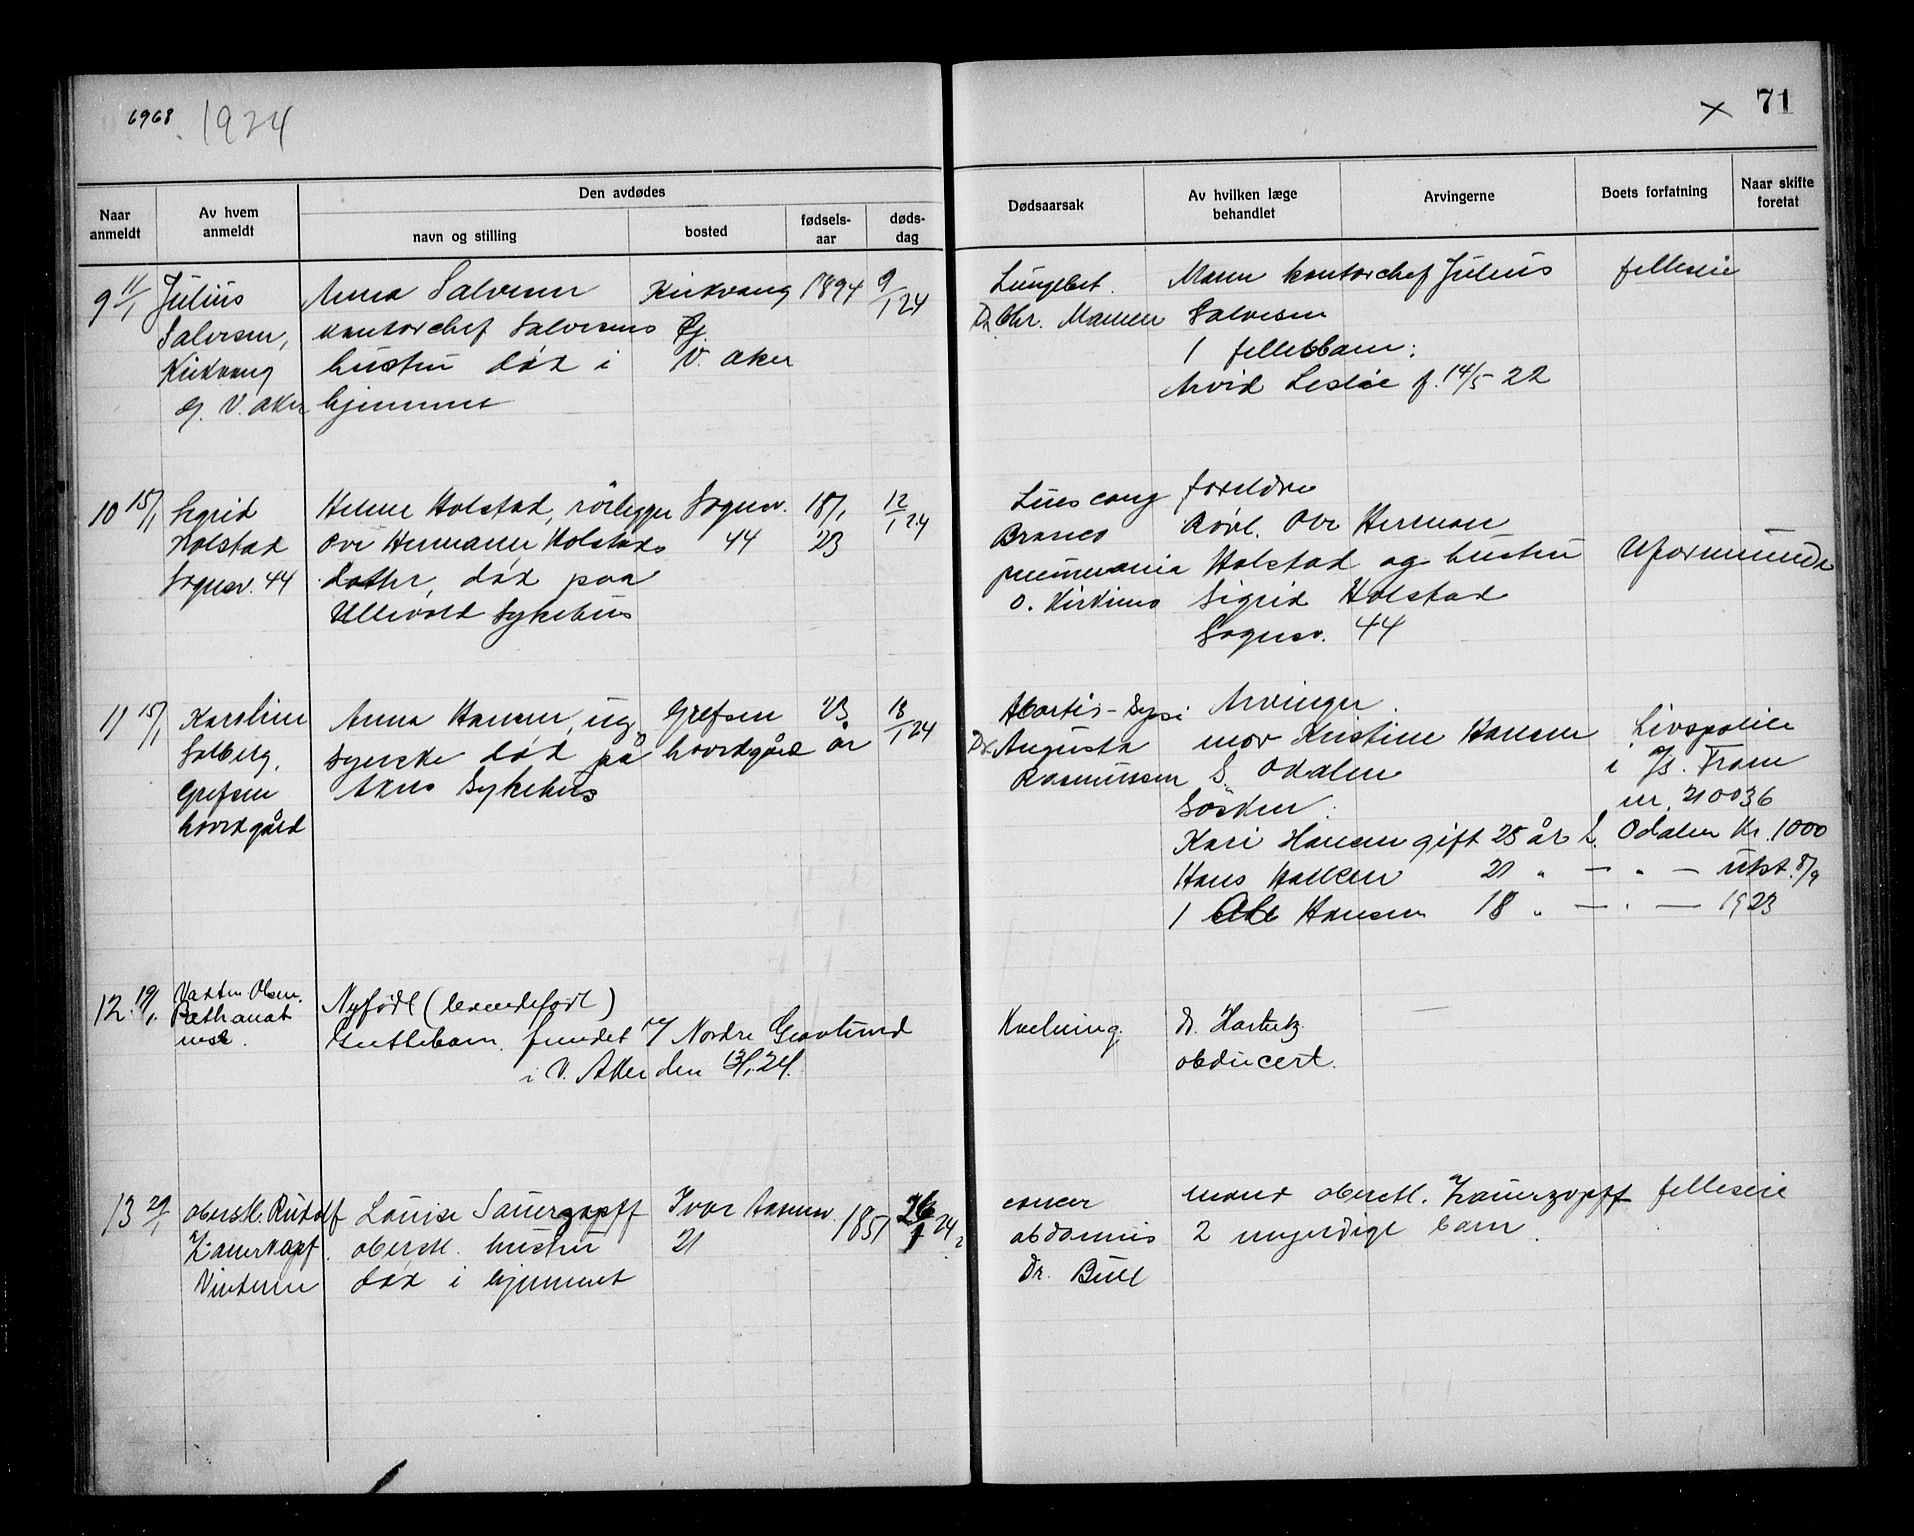 6968 1924
71
Den avdødes
Naar anmeldt
Av hvem anmeldt
navn og stilling
bosted
fødsels-aar
døds-dag
Dødsaarsak
Av hvilken læge behandlet
Arvingerne
Boets forfatning
Naar skifte foretat
9 11/1 Julius Anna Salvesen Kirkvang 1894 9/1 24 Mann kontorchef Julius felleseie
Salvesen, kontorchef Salvesens Ej. Dr. Chr. Mamen Salvesen
Kirkvang hustru død i V. Aker 1 fellesbarn:
Ej. V. Aker hjemmet Arvid f. 14/5 22
10 15/1 Sigrid Helene Holstad, rørlegger Sognsv. 18/1 12/1 24 Lues cong foreldre
Holstad Ove Hermann Holstads 44 23 Bronco Rørl. Ove Herman
Sognsv. 44 datter, død paa pneumonia Holstad og hustru Uformuende
Ullevold Sykehus Sigrid Holstad
Sognsv. 44
11 15/1 Karoline Anna Hansen, ug. Grefsen 23 13/1 24 Arvinger.
Solberg, syerske død på hovedgård år Dr. Augusta mor Kristine Hansen Livspolice
Grefsen Akers Sykehus Rasmussen S. Odalen i A/s. Fram
hovedgård Søsken: nr. 210036
Kari Hansen gift 25 år S. Odalen Kr. 1000
Hans Hansen 21 " — " — utst. 8/9
1 Hansen 18 " — " — 1923
12. 19/1 Olsen. Nyfødt (levendefødt)
Guttebarn fundet Nordre Gravlund Kvelning. dr. Harbitz
i V. Aker den 13/1 24. obducert.
13 29/1 oberstl. Rudolf Louise Sauerzapff Ivar Aasenv. 1851 26/1 24 cancer mand oberstl. Zauerzapff felleseie
oberstl. hustru 21 abdominis 2 myndige barn.
Vinderen død i hjemmet Dr. Bull